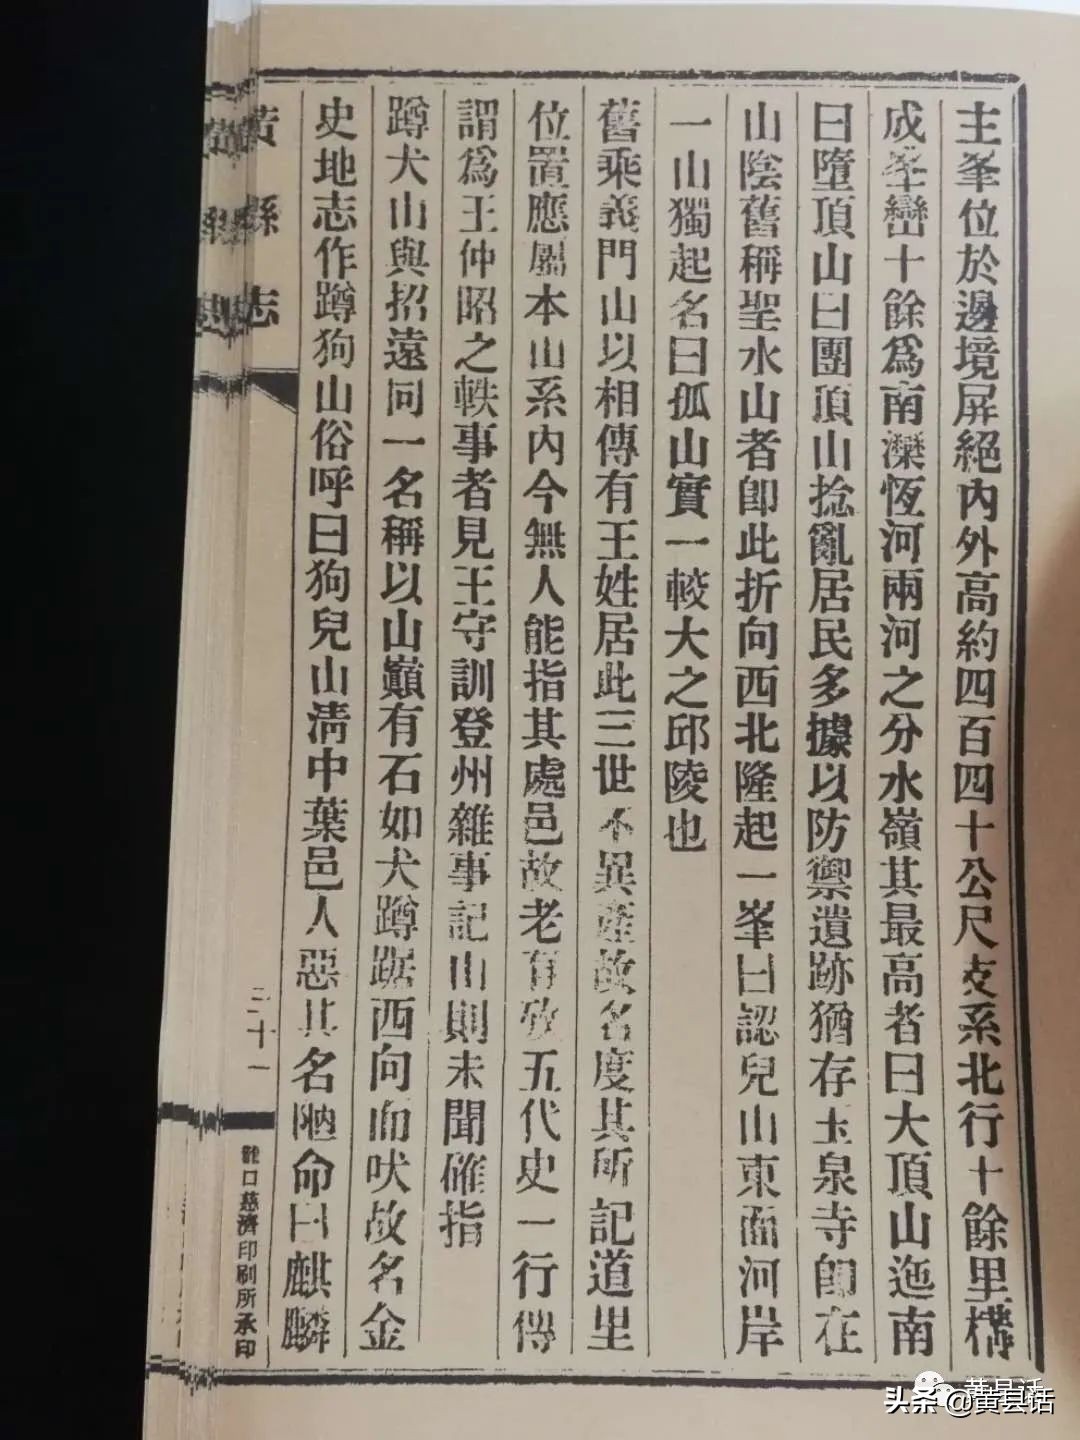 主峯位於邊境屏絕內外高約四百四十公尺支系北行十餘里構
成峯巒十餘爲南灤恆河兩河之分水嶺其最高者曰大頂山迤南
曰墮頂山曰團頂山捻亂居民多據以防禦遺跡猶存玉泉寺卽在
山陰舊稱聖水山者卽此折向西北隆起一峯曰認兒山東面河岸
一山獨起名曰孤山實一較大之邱陵也
舊乘義門山以相傳有王姓居此三世不異產故名度其所記道里
位置應屬本山系內今無人能指其處邑故老有攷五代史一行傳
謂爲王仲昭之軼事者見王守訓登州雜事記山則未聞確指
蹲犬山與招遠同一名稱以山巔有石如犬蹲踞西向而吠故名金
史地志作蹲狗山俗呼曰狗兒山清中葉邑人惡其名陋命曰麒麟
黃縣志
二十一
龍口慈濟印刷所承印
黄县话
头条 @黄县话